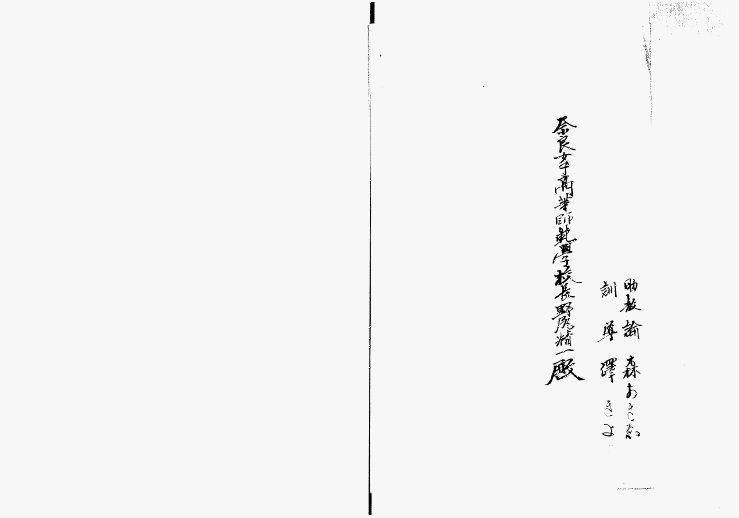 助教諭 森
訓導 澤 きよ
奈良女子高等師範學校長野尻精一殿